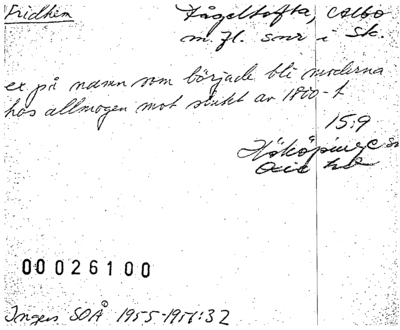 Fridhem
Fågeltofta, Albo
m.fl. snr i Sk.
ex på namn som började bli moderna
hos allmogen mot slutet av 1800-t
15:9
00026100
Ingers SOÅ 1955-1956:32